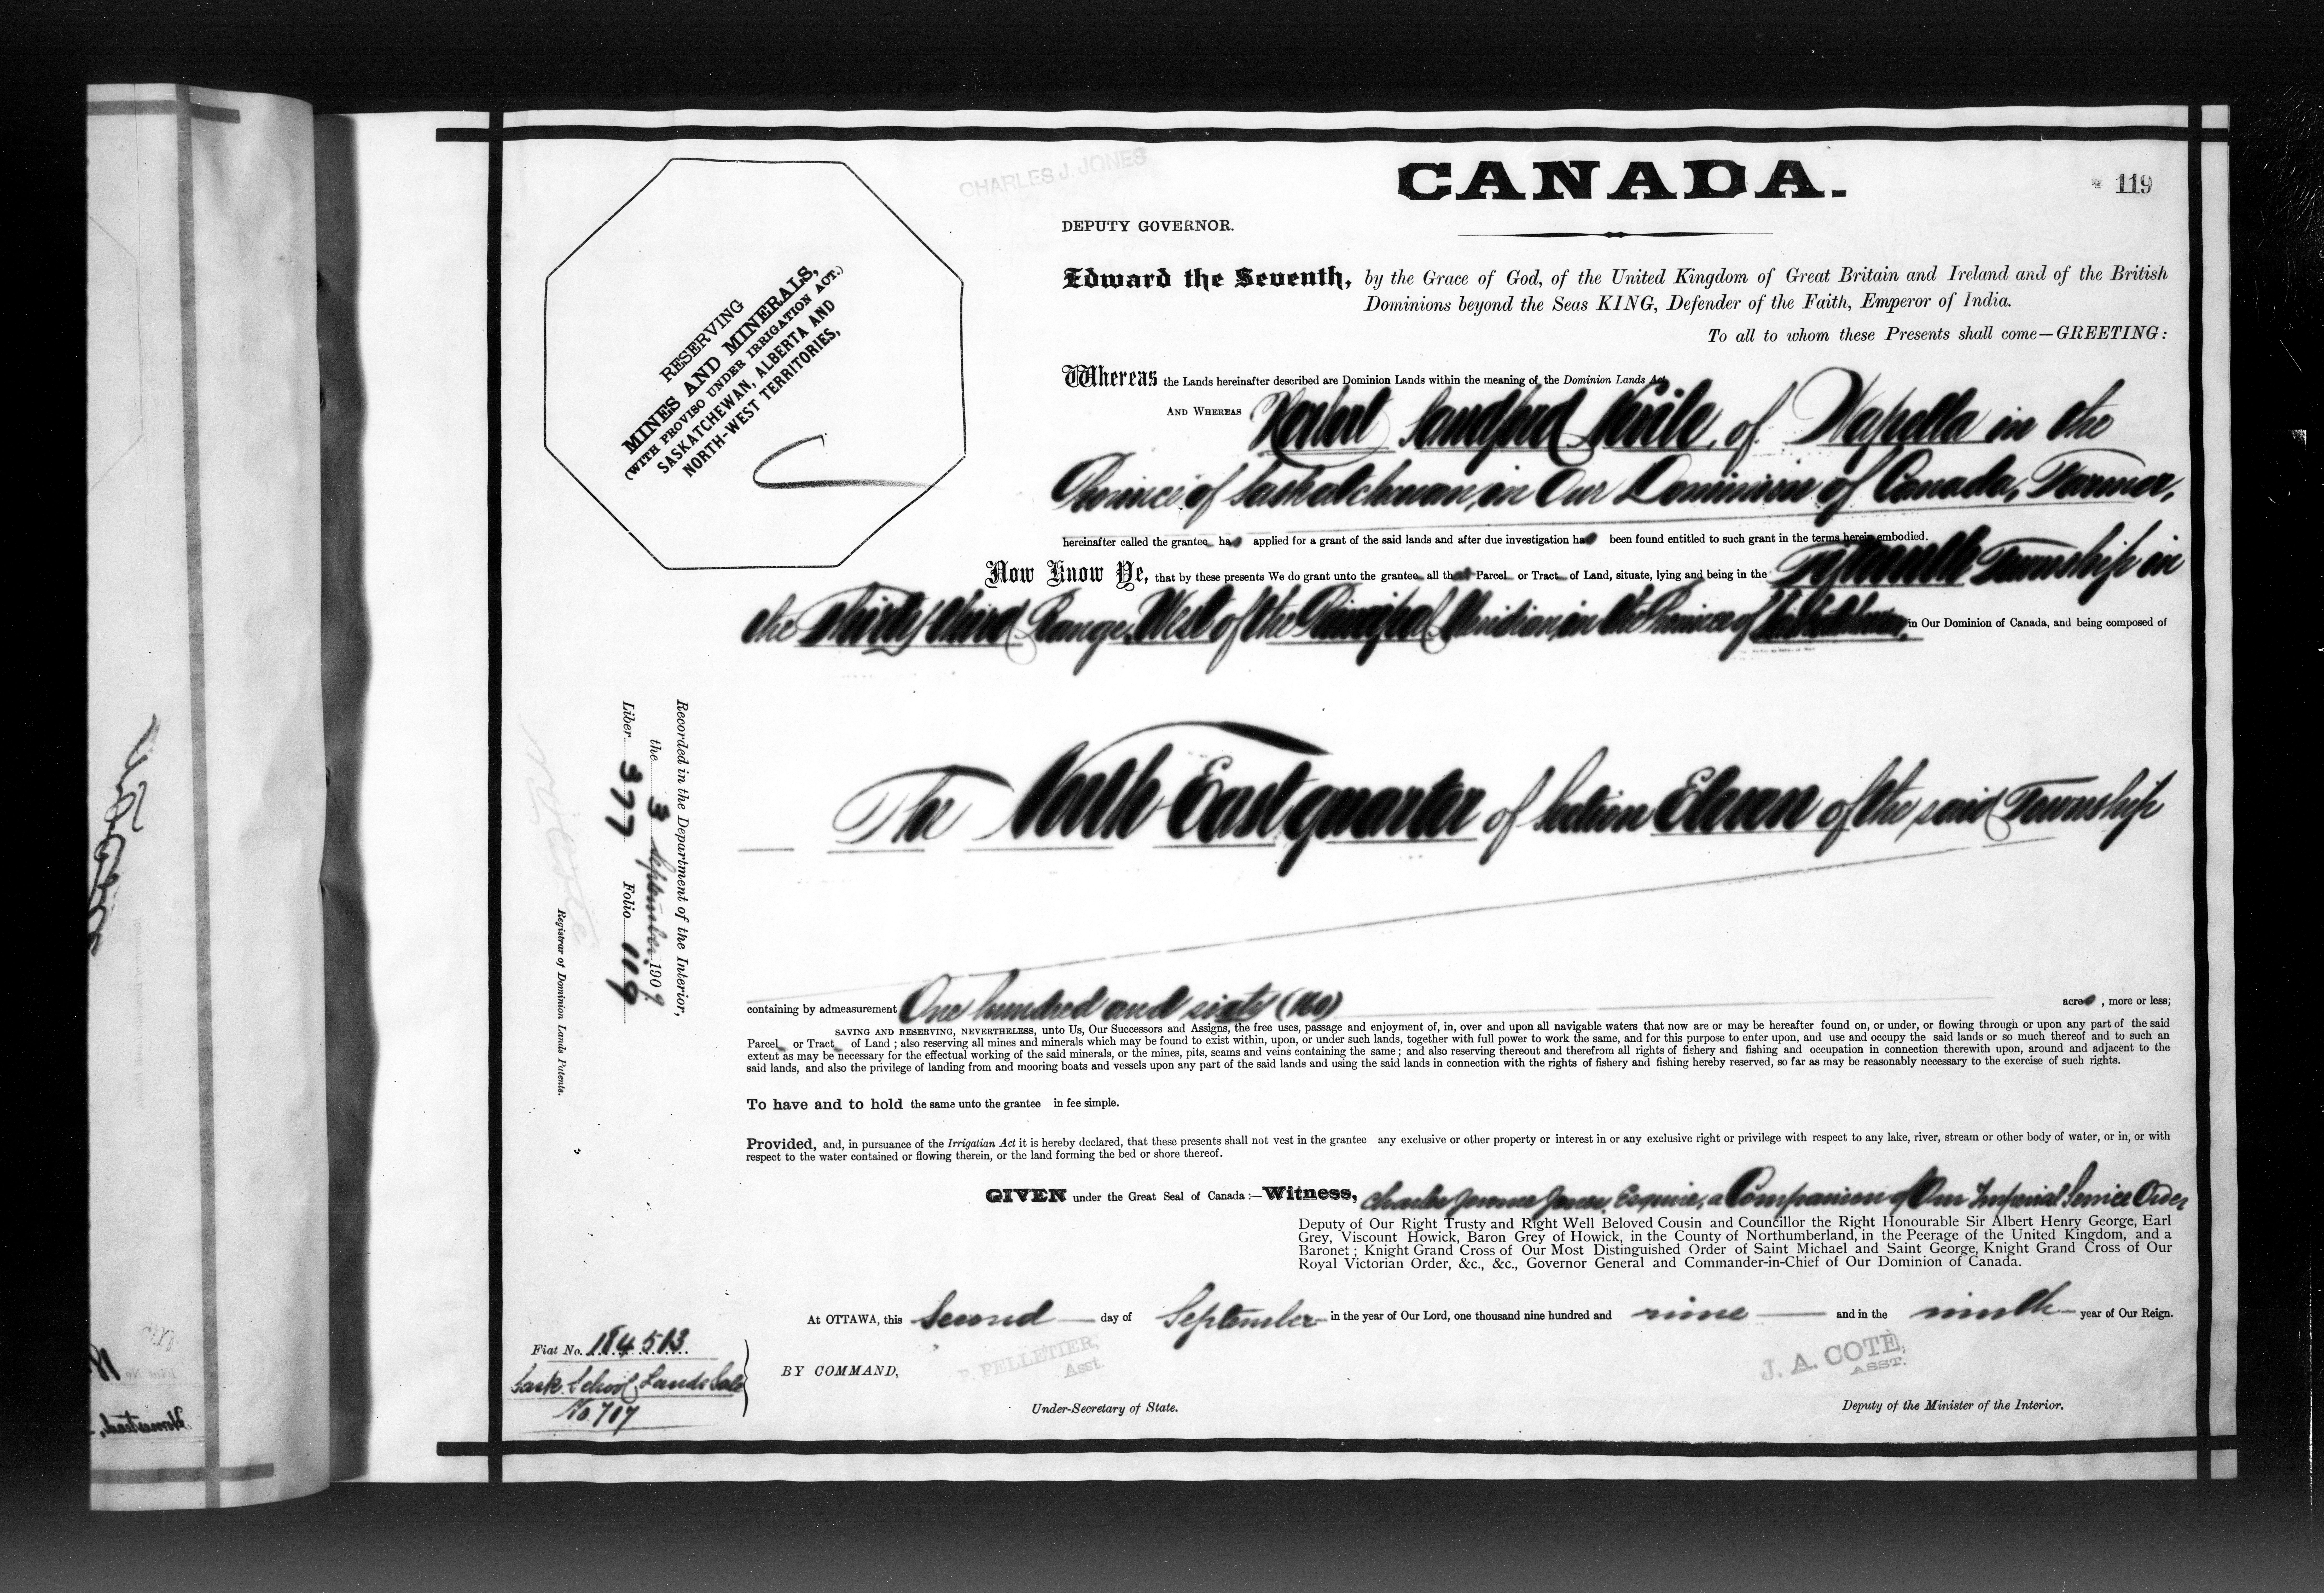 CHARLES J. JONES
CANADA.
119
DEPUTY GOVERNOR.
RESERVING
MINES AND MINERALS,
(WITH PROVISO UNDER IRRIGATION ACT.)
SASKATCHEWAN, ALBERTA AND
NORTH-WEST TERRITORIES,
Edward the Seventh, by the Grace of God, of the United Kingdom of Great Britain and Ireland and of the British
Dominions beyond the Seas KING, Defender of the Faith, Emperor of India.
To all to whom these Presents shall come—GREETING:
Whereas the Lands hereinafter described are Dominion Lands within the meaning of the Dominion Lands Act,
AND WHEREAS Herbert Sandford, of Wapella in the
Province of Saskatchewan, in Our Dominion of Canada, Farmer,
hereinafter called the grantee has applied for a grant of the said lands and after due investigation has been found entitled to such grant in the terms herein embodied.
Now Know Ye, that by these presents We do grant unto the grantee all that Parcel or Tract of Land, situate, lying and being in the Township in
the Thirty third Range, West of the Principal Meridian, in the Province of Saskatchewan, in Our Dominion of Canada, and being composed of
The North East quarter of Section Eleven of the said Township
containing by admeasurement One hundred and sixty (160) acres, more or less;
SAVING AND RESERVING, NEVERTHELESS, unto Us, Our Successors and Assigns, the free uses, passage and enjoyment of, in, over and upon all navigable waters that now are or may be hereafter found on, or under, or flowing through or upon any part of the said
Parcel or Tract of Land; also reserving all mines and minerals which may be found to exist within, upon, or under such lands, together with full power to work the same, and for this purpose to enter upon, and use and occupy the said lands or so much thereof and to such an
extent as may be necessary for the effectual working of the said minerals, or the mines, pits, seams and veins containing the same; and also reserving thereout and therefrom all rights of fishery and fishing and occupation in connection therewith upon, around and adjacent to the
said lands, and also the privilege of landing from and mooring boats and vessels upon any part of the said lands and using the said lands in connection with the rights of fishery and fishing hereby reserved, so far as may be reasonably necessary to the exercise of such rights.
To have and to hold the same unto the grantee in fee simple.
Provided, and, in pursuance of the Irrigation Act it is hereby declared, that these presents shall not vest in the grantee any exclusive or other property or interest in or any exclusive right or privilege with respect to any lake, river, stream or other body of water, or in, or with
respect to the water contained or flowing therein, or the land forming the bed or shore thereof.
GIVEN under the Great Seal of Canada:—Witness, Charles Jerome Jones, Esquire, a Companion of Our Imperial Service Order
Deputy of Our Right Trusty and Right Well Beloved Cousin and Councillor the Right Honourable Sir Albert Henry George, Earl
Grey, Viscount Howick, Baron Grey of Howick, in the County of Northumberland, in the Peerage of the United Kingdom, and a
Baronet; Knight Grand Cross of Our Most Distinguished Order of Saint Michael and Saint George, Knight Grand Cross of Our
Royal Victorian Order, &c., &c., Governor General and Commander-in-Chief of Our Dominion of Canada.
At OTTAWA, this Second day of September in the year of Our Lord, one thousand nine hundred and nine and in the ninth year of Our Reign.
BY COMMAND,
P. PELLETIER,
Asst.
Under-Secretary of State.
J. A. COTÉ,
ASST.
Deputy of the Minister of the Interior.
Fiat No. 184513
Sask. School Lands Sale
No. 707
Recorded in the Department of the Interior,
the 3 September 1909
Liber 377 Folio 119
Registrar of Dominion Lands Patents.